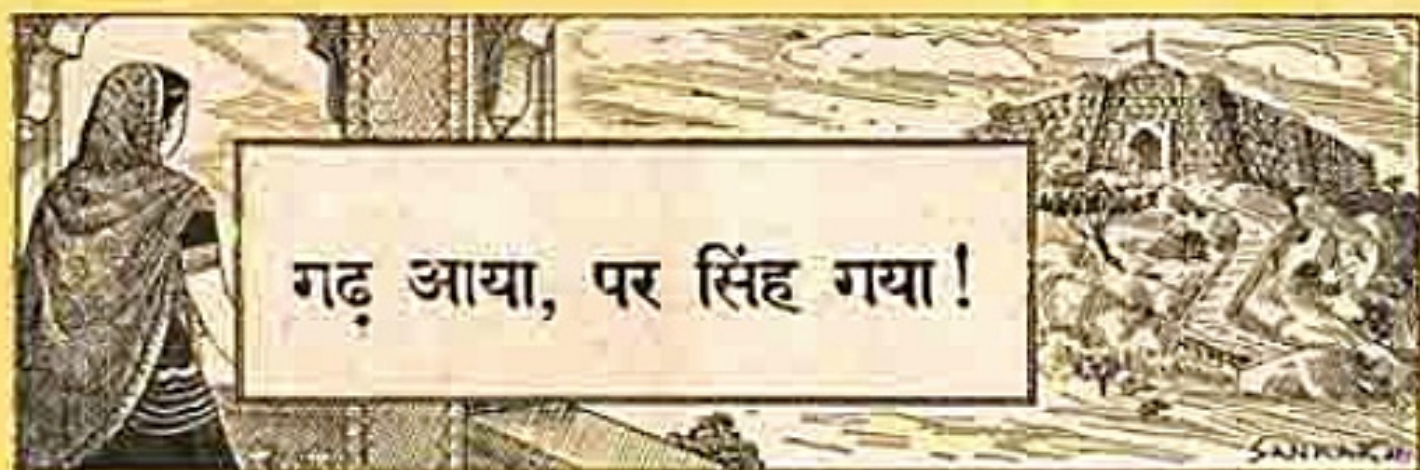 गढ़ आया, पर सिंह गया!
SANKAR